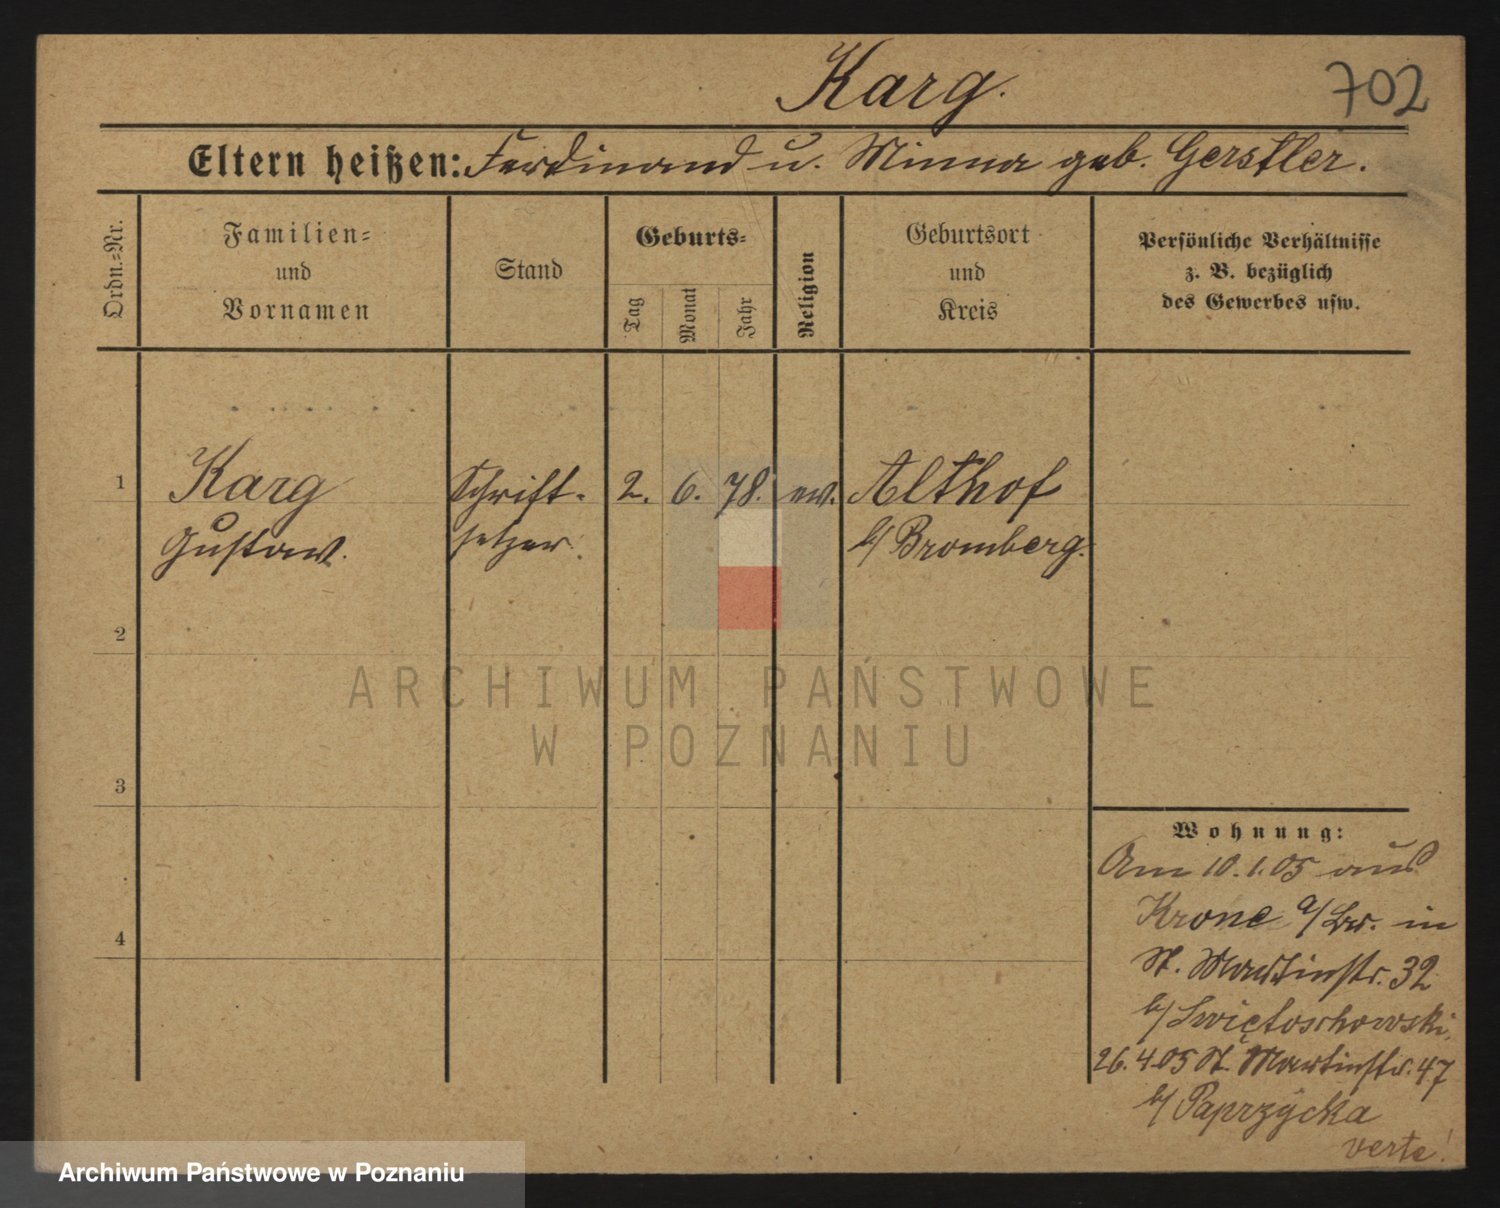 Karg.
702
Eltern heißen: Ferdinand u. Minna geb. Gerstler.
Ordn.-Nr.
Familien-
und
Vornamen
Stand
Geburts-
Tag
Monat
Jahr
Religion
Geburtsort
und
Kreis
Persönliche Verhältnisse
z. B. bezüglich
des Gewerbes usw.
1
Karg
Gustav.
Schrift-
setzer.
2. 6. 78. ev.
Althof
b/ Bromberg.
2
3
4
Wohnung:
Am 10.1.05 aus
Krone a/Br. in
St. Martinstr. 32
b/ Swiętochowski,
26.4.05 St. Martinstr. 47
b/ Paprzycka
verte!
ARCHIWUM PAŃSTWOWE
W POZNANIU
Archiwum Państwowe w Poznaniu